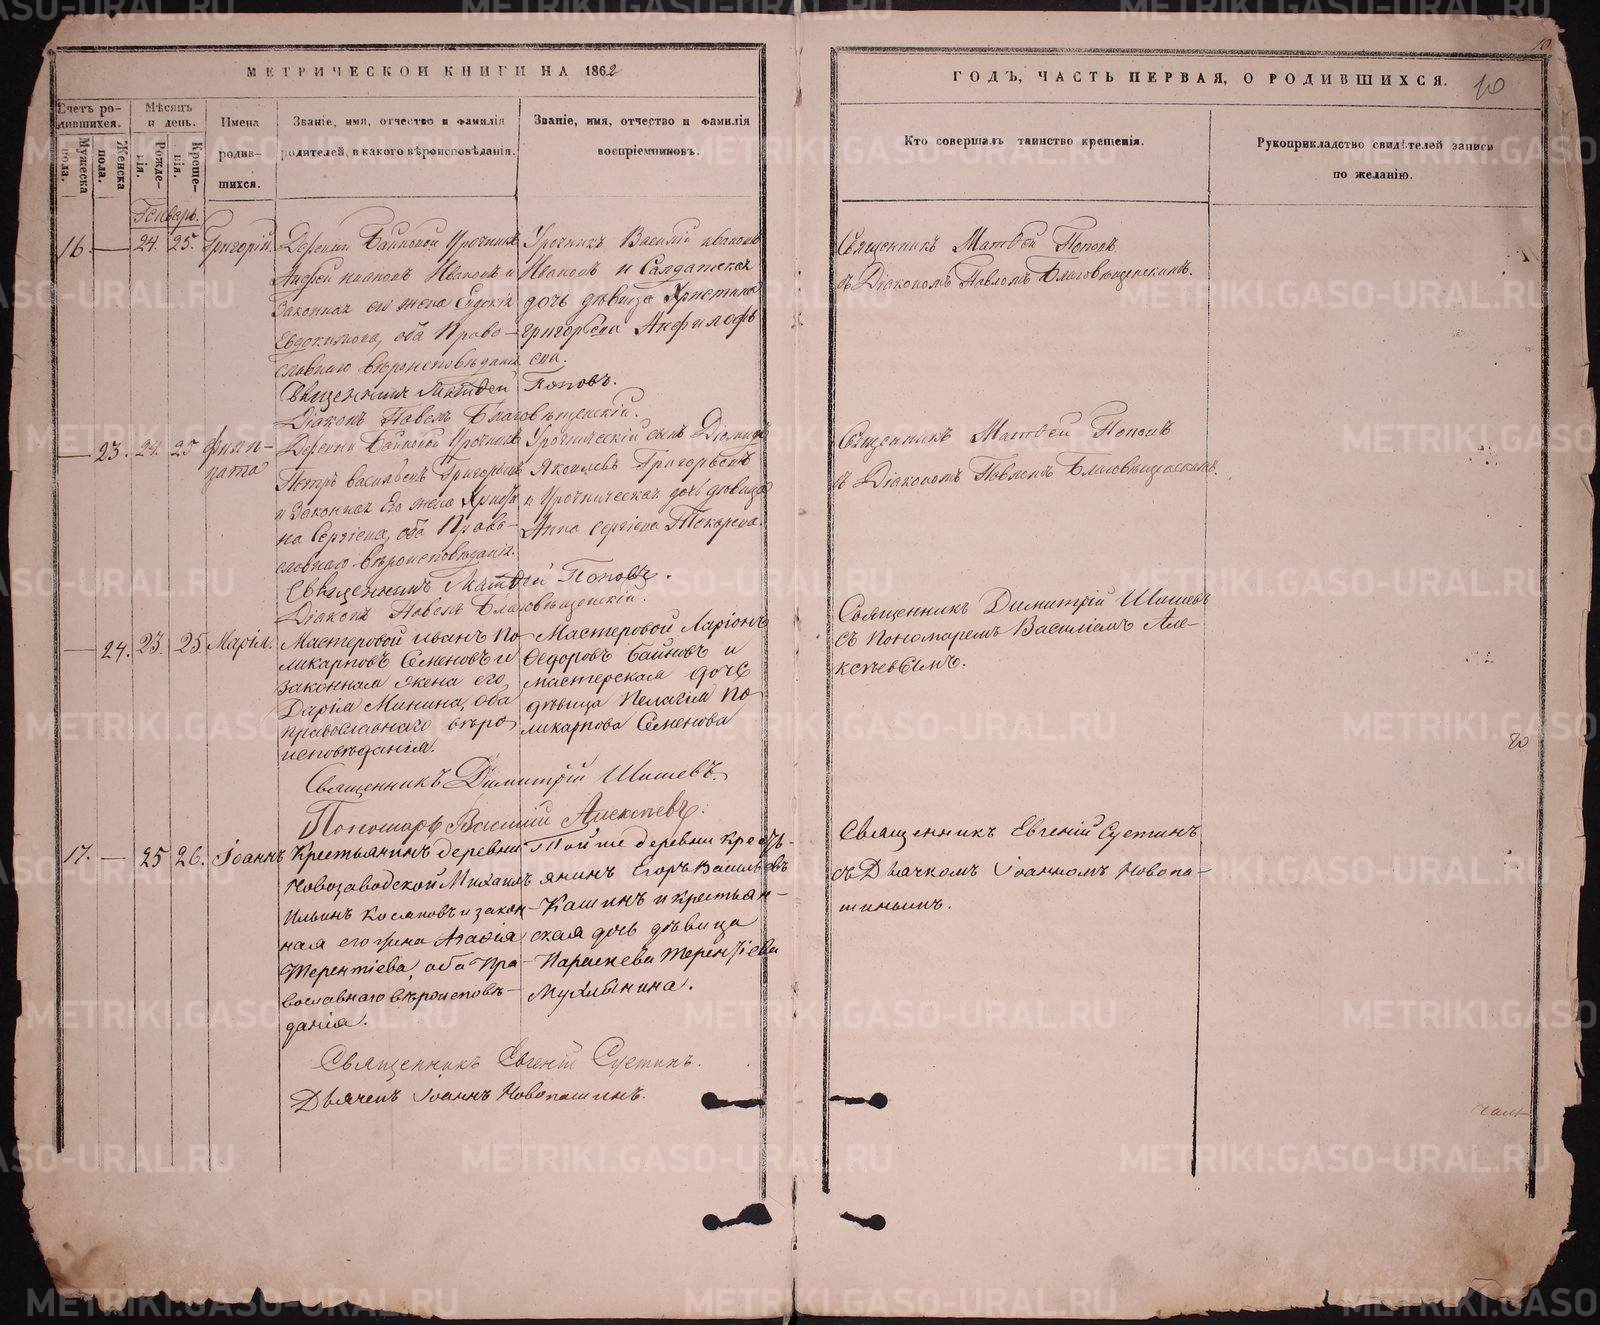 МЕТРИЧЕСКОЙ КНИГИ НА 1862
ГОДЪ, ЧАСТЬ ПЕРВАЯ, О РОДИВШИХСЯ.
10
Счетъ ро-
дившихся.
Мужеска пола.
Женска пола.
Мѣсяцъ
и день.
Рожде-
нія.
Креще-
нія.
Имена
родив-
шихся.
Званіе, имя, отчество и фамилія
родителей, и какого вѣроисповѣданія.
Званіе, имя, отчество и фамилія
воспріемниковъ.
Кто совершалъ таинство крещенія.
Рукоприкладство свидѣтелей записи
по желанію.
Генварь.
16. — 24. 25. Григорій.
Деревни Байновой Урочникъ
Андрей Ивановъ Ивановъ и
Законная его жена Евдокія
Евдокимова, оба Право-
славнаго вѣроисповѣданія
Урочникъ Василій Ивановъ
Ивановъ и Солдатская
дочь дѣвица Христина
Григорьева Анфилофь
ева.
Священникъ Матвей Поповъ
съ Діакономъ Павломъ Благовѣщенскимъ.
Священникъ Матвей Поповъ.
Діаконъ Павелъ Благовѣщенскій.
— 23. 24. 25
Деревни Байновой Урочникъ
Петръ Васильевъ Григорьевъ
и Законная его жена
на Сергіева, оба Право-
славнаго Вѣроисповѣданія.
Урочническій сынъ Діомидъ
Яковлевъ Григорьевъ
и Урочническая дочь дѣвица
Анна Сергіева Токарева.
Священникъ Матвей Поповъ
съ Діакономъ Павломъ Благовѣщенскимъ.
Священникъ Матвей Поповъ.
Діаконъ Павелъ Благовѣщенскій.
— 24. 23. 25 Марія.
Мастеровой Иванъ По
ликарповъ Семеновъ и
законная жена его
Дарія Минина, оба
православнаго вѣро
исповѣданія.
Мастеровой Ларіонъ
Ѳедоровъ Байновъ и
мастерская дочь
дѣвица Пелагія По
ликарпова Семенова
Священникъ Димитрій Шишевъ
съ Пономаремъ Василіемъ Але-
ксѣевымъ.
Священникъ Димитрій Шишевъ.
Пономарь Василій Алексѣевъ.
17. — 25 26. Іоаннъ
Крестьянинъ деревни
Новозаводской Михаилъ
Ильинъ Косяковъ и закон-
ная его жена Агафія
Терентіева, оба Пра-
вославнаго вѣроисповѣ-
данія.
Той же деревни кресть-
янинъ Егоръ Васильевъ
Кашинъ и крестьян-
ская дочь дѣвица
Параскева Терентіева
Мухлынина.
Священникъ Евгеній Суетинъ
съ Дьячкомъ Іоанномъ Новопа-
шинымъ.
Священникъ Евгеній Суетинъ.
Дьячекъ Іоаннъ Новопашинъ.